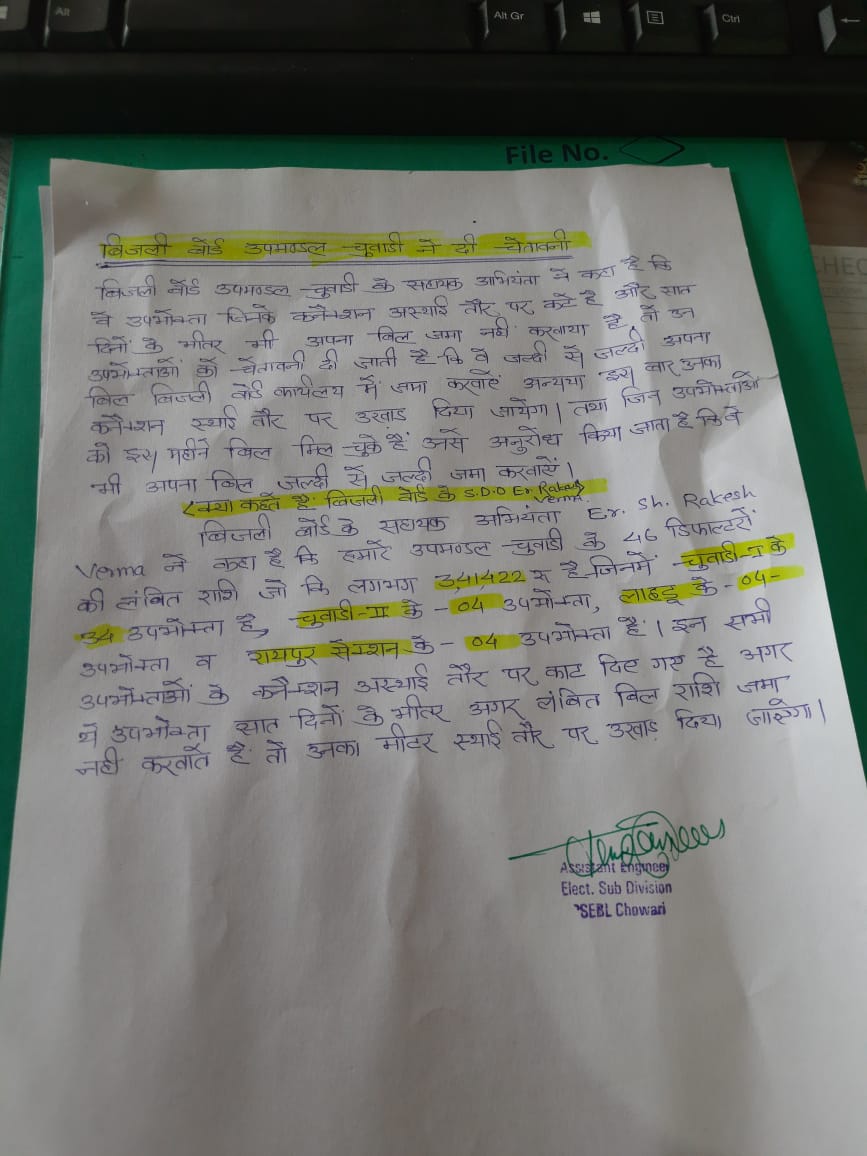 Alt
Alt Gr
Ctrl
File No.
CHEC
बिजली बोर्ड उपमण्डल चुवाडी ने दी चेतावनी
बिजली बोर्ड उपमण्डल चुवाडी के सहायक अभियंता ने कहा है कि
वे उपभोक्ता जिनके कनैक्शन अस्थाई तौर पर कटे है और सात
दिनों के भीतर भी अपना बिल जमा नही करवाया है, तो उन
उपभोक्ताओं को चेतावनी दी जाती है कि वे जल्दी से जल्दी अपना
बिल बिजली बोर्ड कार्यालय में जमा करवाऐं अन्यथा इस बार उनका
कनैक्शन स्थाई तौर पर उखाड़ दिया जायेगा। तथा जिन उपभोक्ताओं
को इस महीने बिल मिल चुके हैं उनसे अनुरोध किया जाता है कि वे
भी अपना बिल जल्दी से जल्दी जमा करवाऐं।
(क्या कहते है बिजली बोर्ड के S.D.O Er. Rakesh Verma)
बिजली बोर्ड के सहायक अभियंता Er. Sh. Rakesh
Verma ने कहा है कि हमारे उपमण्डल चुवाडी के 46 डिफाल्टरों
की लंबित राशि जो कि लगभग 3,41,422 रू है जिनमें चुवाडी-I के
34 उपभोक्ता है, चुवाडी-II के - 04 उपभोक्ता, लाहडू के - 04 -
उपभोक्ता व रायपुर सेक्शन के - 04 उपभोक्ता हैं। इन सभी
उपभोक्ताओं के कनैक्शन अस्थाई तौर पर काट दिए गए है अगर
ये उपभोक्ता सात दिनों के भीतर अगर लंबित बिल राशि जमा
नही करवाते है तो उनका मीटर स्थाई तौर पर उखाड़ दिया जाऐगा।
Assistant Engineer
Elect. Sub Division
SEBL Chowari